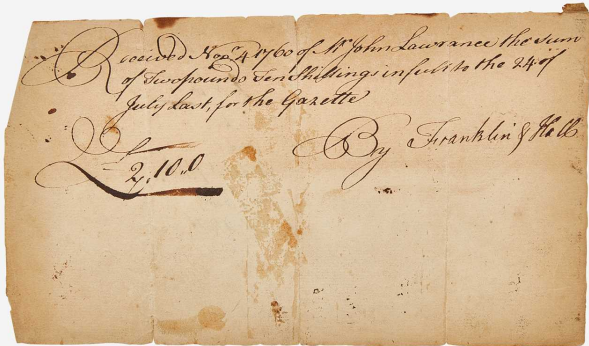 Received Novr. 4 1760 of Mr. John Lawrance the sum
of Two pounds Ten Shillings in full to the 24 of
July Last, for the Gazette
By Franklin & Hall
£ 2,,10,,0